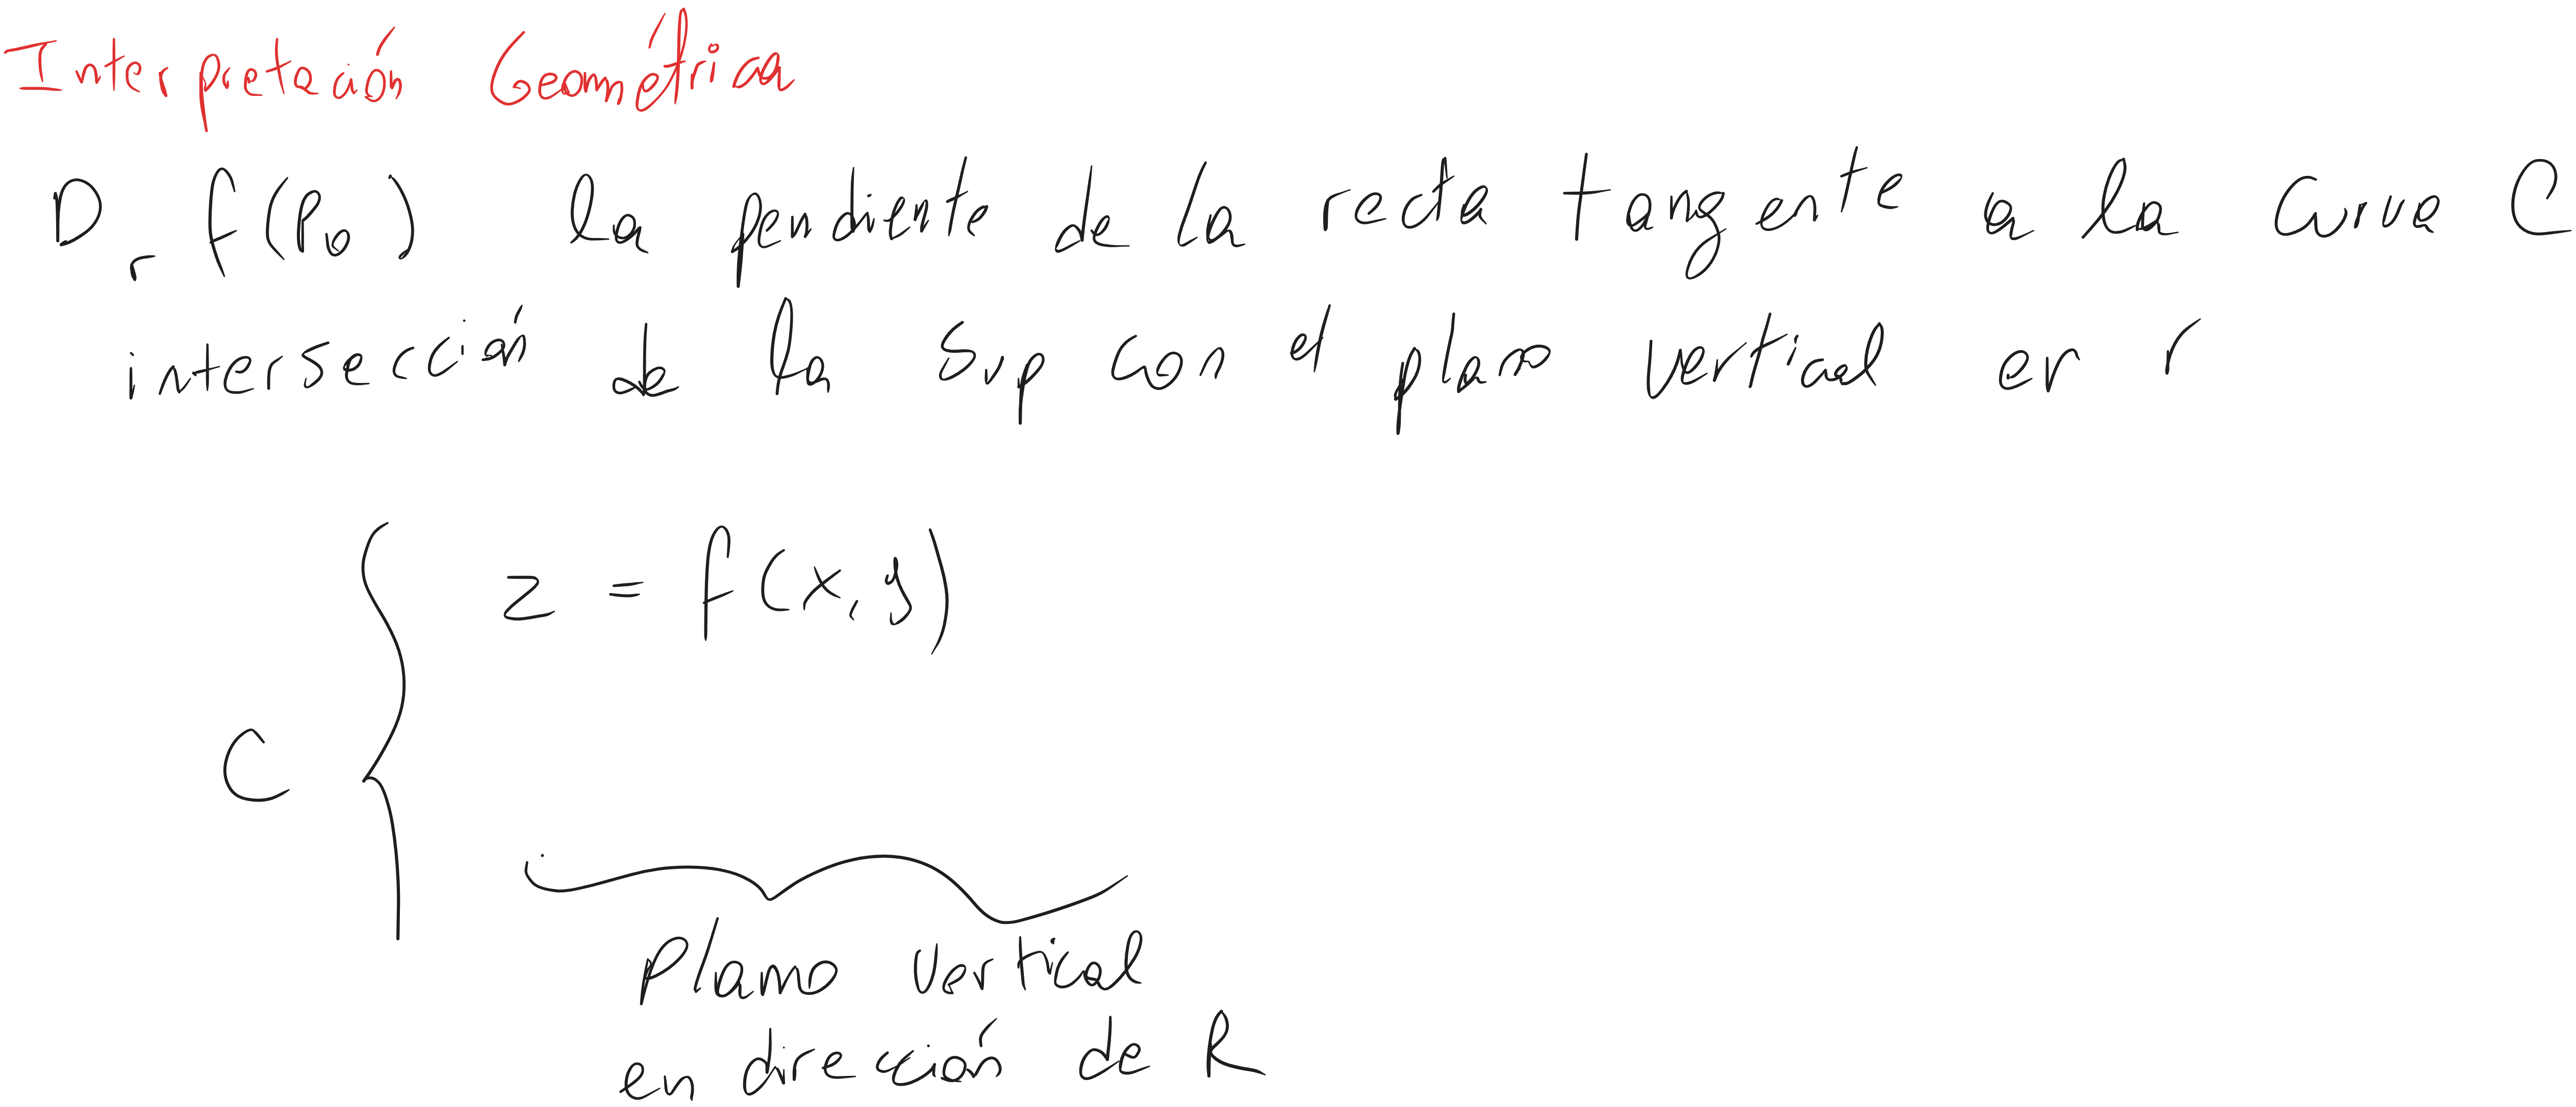 Interpretación Geométrica
D_r f(P₀) la pendiente de la recta tangente a la curva C
intersección de la sup con el plano vertical en r
z = f(x,y)
C {
Plano vertical
en dirección de R